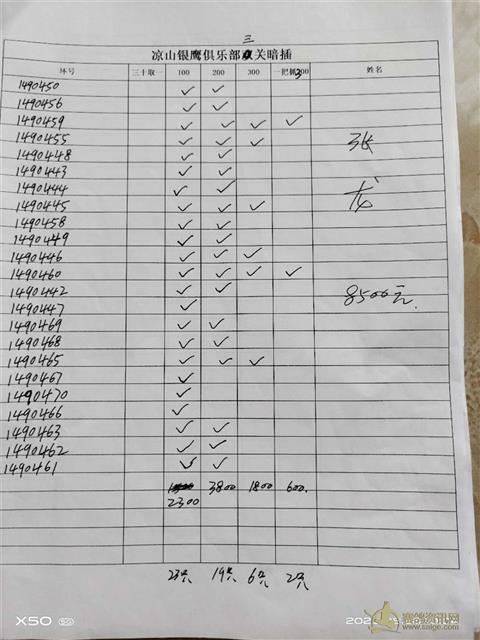 三
凉山银鹰俱乐部关暗插
环号 三十取一 100 200 300 一把抓300 姓名
1490450 ✓ ✓
1490456 ✓ ✓
1490459 ✓ ✓ ✓ ✓
1490455 ✓ ✓ ✓ 张
1490448 ✓ ✓
1490443 ✓ ✓
1490444 ✓ ✓ 龙
1490445 ✓ ✓ ✓
1490458 ✓ ✓
1490449 ✓ ✓
1490446 ✓ ✓ ✓
1490460 ✓ ✓ ✓ ✓
1490442 ✓ ✓ 8500元.
1490447 ✓
1490469 ✓ ✓
1490468 ✓ ✓
1490465 ✓ ✓ ✓
1490467 ✓
1490470 ✓
1490466 ✓
1490463 ✓ ✓
1490462 ✓ ✓
1490461 ✓ ✓
3800 1800 600.
2300
23只 19只 6只 2只
X50 5G
赛鸽资讯网
www.saige.com